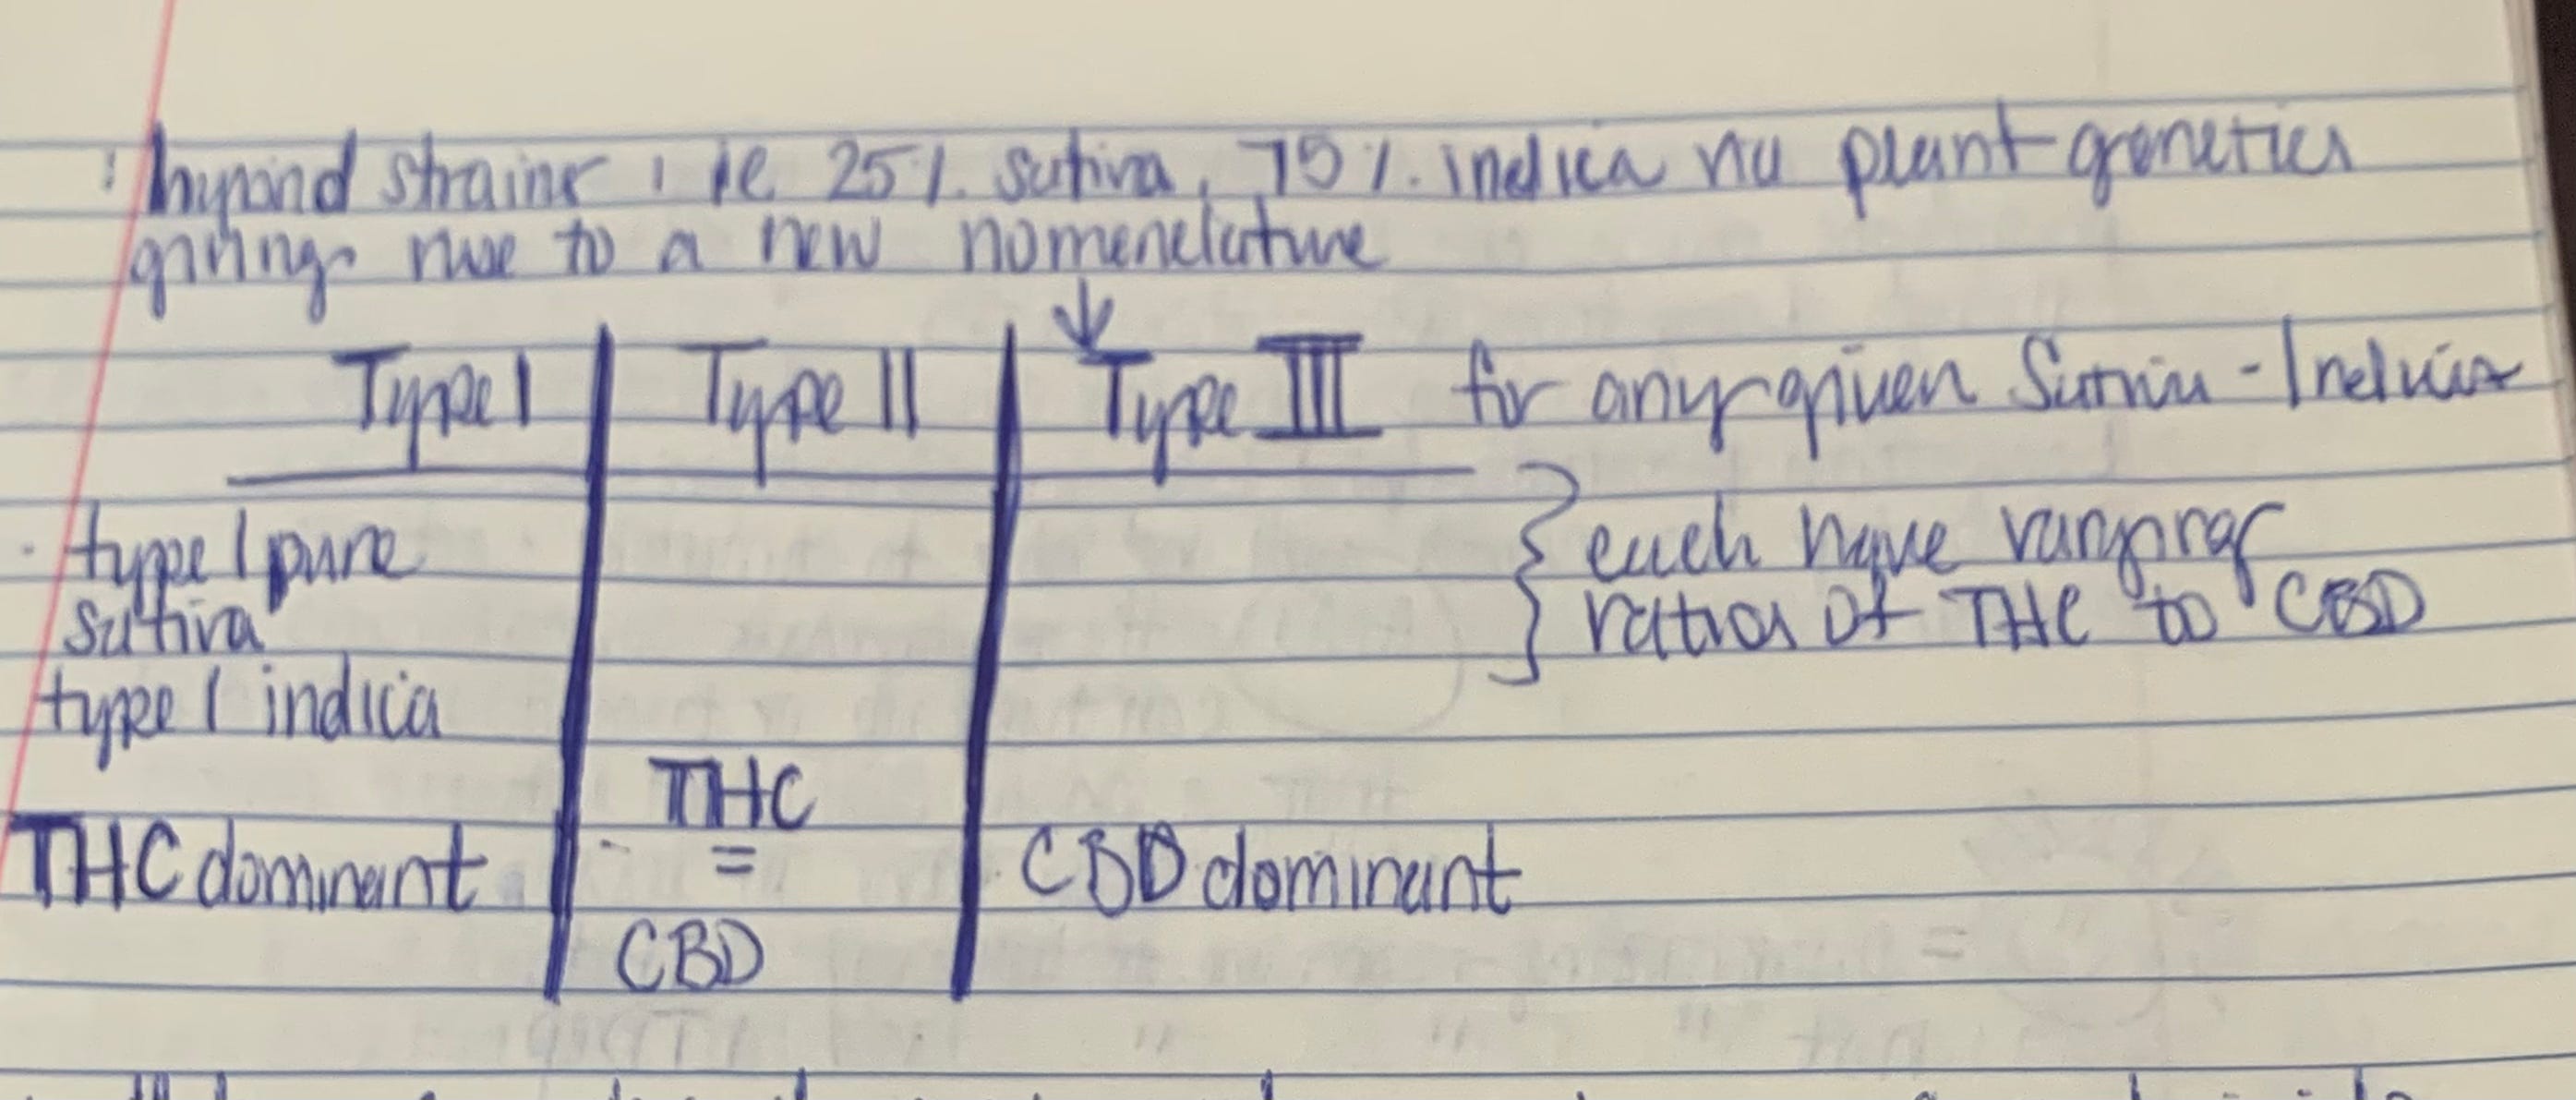 : hybrid strains, ie 25% sativa, 75% indica via plant genetics
giving rise to a new nomenclature
↓
Type I | Type II | Type III for any given Sativa - Indica
· type I pure sativa
type I indica
} each have varying
ratios of THC to CBD
THC dominant
THC
=
CBD
CBD dominant